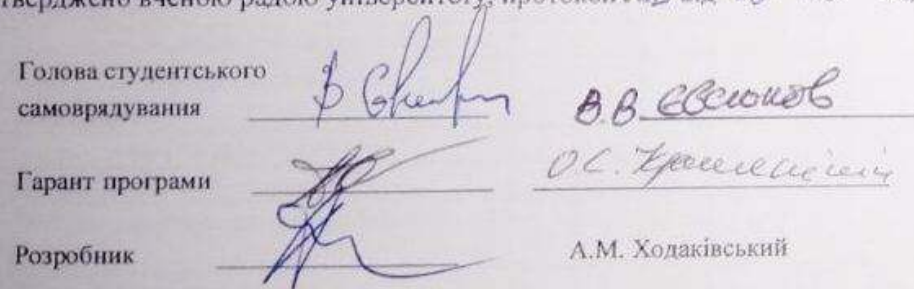 вченою радою університету, протокол
Голова студентського
самоврядування В.В Євсюков
Гарант програми О.С.
Розробник А.М. Ходаківський